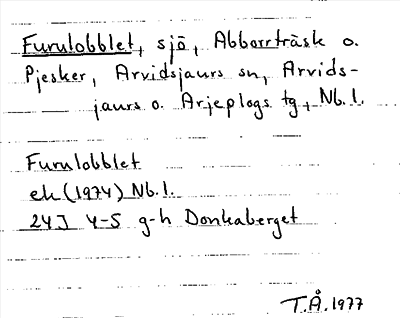 Furulobblet, sjö, Abborrträsk o.
Pjesker, Arvidsjaurs sn, Arvids-
jaurs o. Arjeplogs tg, Nb. l.
Furulobblet
ek (1974) Nb. l.
24J 4-5 g-h Donkaberget
T.Å. 1977